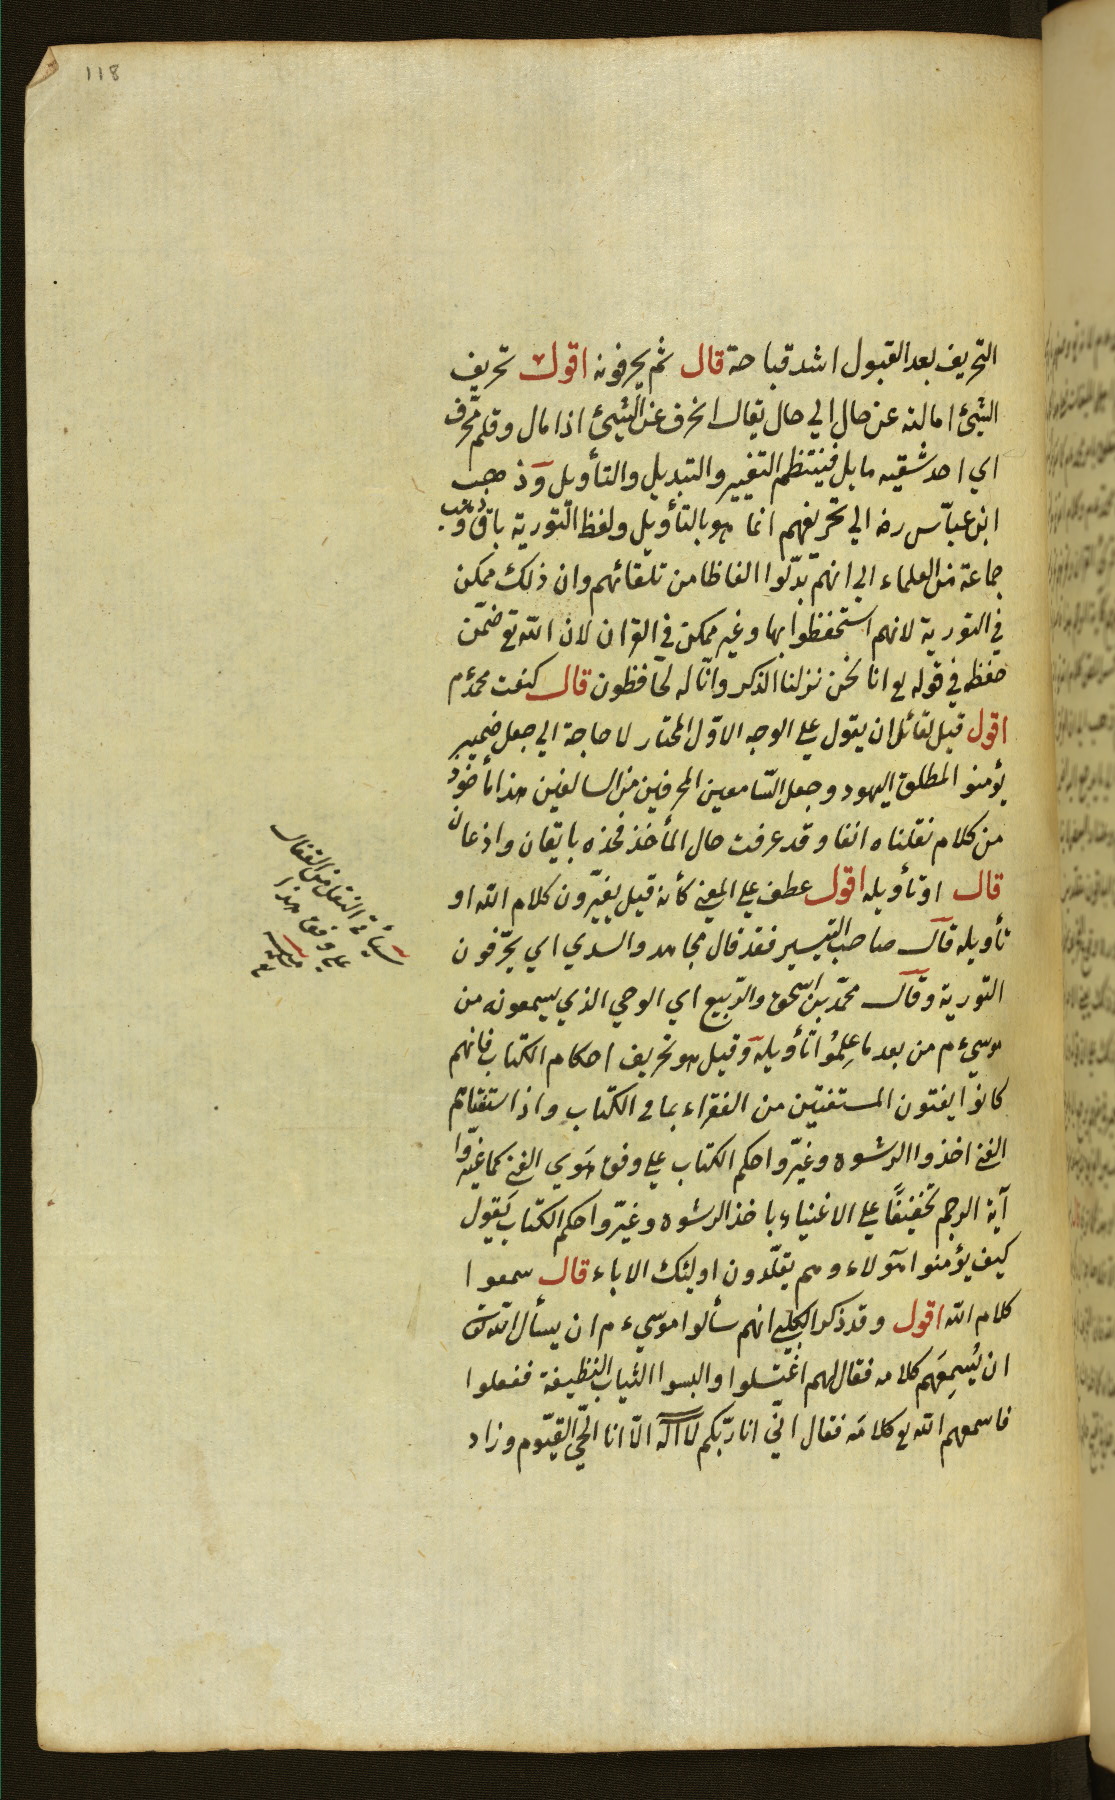 118
التحريف بعد القبول اشد قباحة قال ثم يحرفونه اقول تحريف
الشئ امالته عن حال الي حال يقال انحرف عن الشئ اذا مال وقلم محرف
اي احد شقيه مايل فينتظم التغيير والتبديل والتأويل وذهب
ابن عباس رضه الي تحريفهم انما هو بالتأويل ولفظ التورية باق وذهب
جماعة من العلماء الي انهم بدّلوا الفاظا من تلقائهم وان ذلك ممكن
في التورية لانهم استحفظوا بها وغير ممكن في القران لان الله تع ضمن
حفظه في قوله تع انا نحن نزلنا الذكر وانّا له لحافظون قال كنعت محمد عم
اقول قيل لقائل ان يقول علي الوجه الاوّل المختار لا حاجة الي جعل ضمير
يؤمنو المطلق اليهود وجعل السّامعين المحرفين من السالفين هذا مأخوذ
من كلام نقلناه انفا وقد عرفت حال المأخذ فخذه بايقان واذعان
قال او تأويله اقول عطف علي المعني كأنه قيل يغيّرون كلام الله او
تأويله قال صاحب التيسير فقد قال مجاهد والسدي اي يحرّفون
التورية وقال محمّد بن اسحق والرّبيع اي الوحي الذي يسمعونه من
موسي عم من بعد ما علِمُوا تأويله وقيل هو تحريف احكام الكتاب فانهم
كانوا يفتون المستفتين من الفقراء بما في الكتاب واذا استفتاهم
الغني اخذوا الرشوه وغيّروا حكم الكتاب علي وفق هَوي الغني كما غيّروا
آية الرجم تخفيفًا علي الاغنياء باخذ الرشوه وغيّروا حكم الكتاب يَقول
كيف يؤمنوا هؤلاء وهم يقلّدون اوليئك الاباء قال سمعوا
كلام الله اقول وقد ذكر الكلبي انهم سألوا موسي عم ان يسأل الله تع
ان يُسمِعَهم كلامه فقال لهم اغتسلوا والبسوا الثياب النظيفة ففعلوا
فاسمعهم الله تع كلامَه فقال انّي انا ربّكم لا اله الّا انا الحيّ القيّوم وزاد
سيأتي النقل من القفال
علي وفق هذا